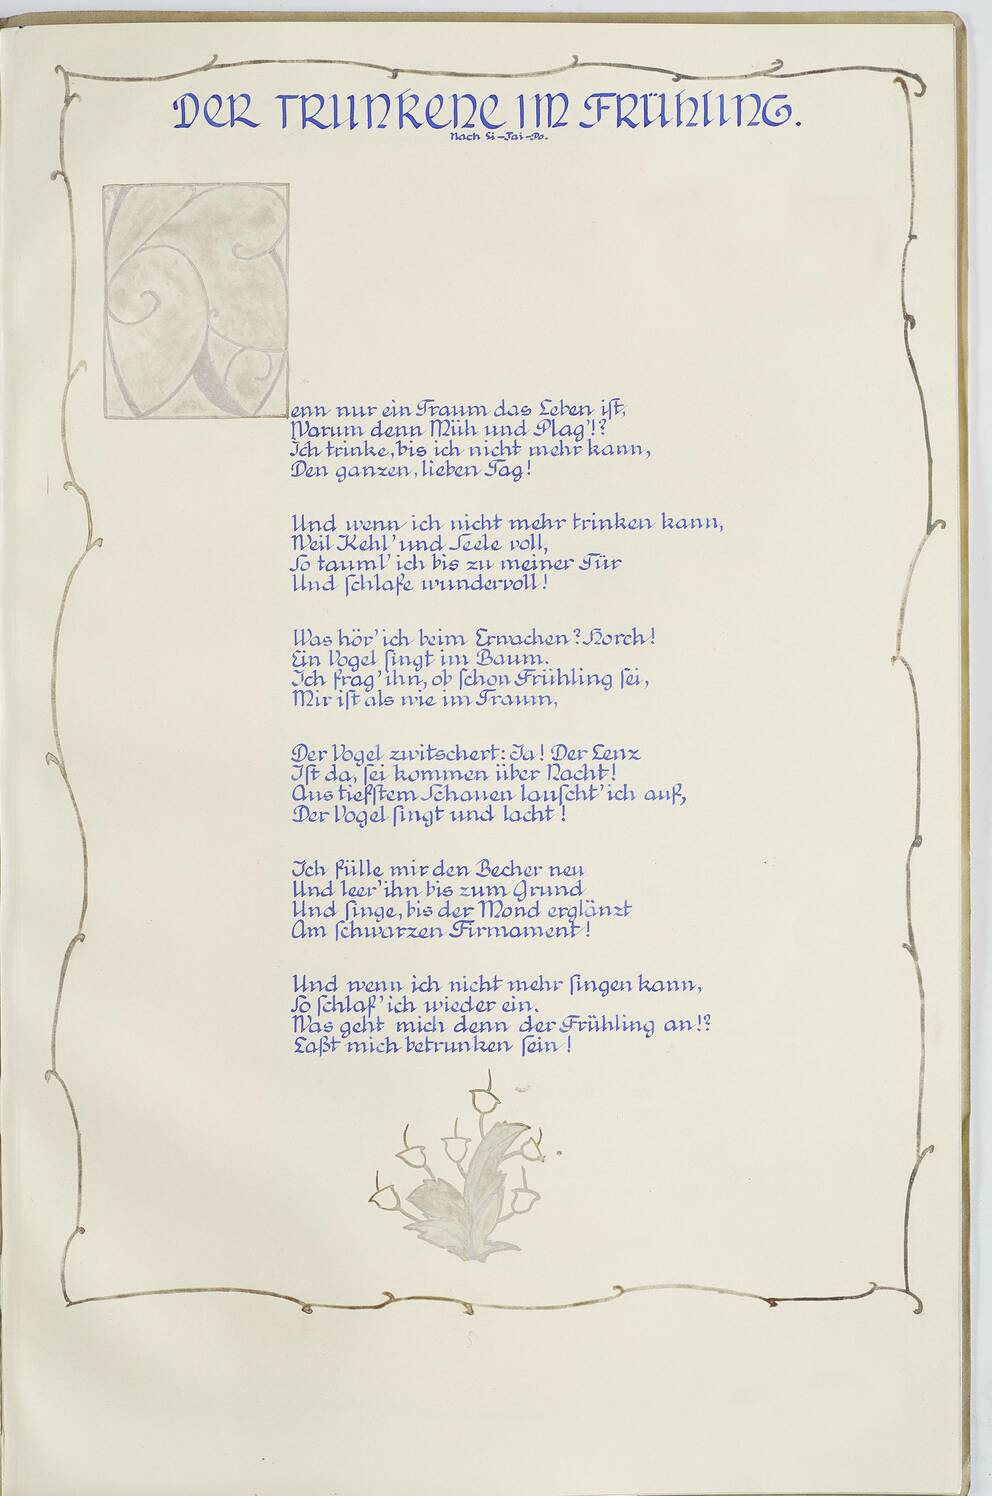 DER TRUNKENE IM FRÜHLING.
Nach Li-Tai-Po.
Wenn nur ein Traum das Leben ist,
Warum denn Müh und Plag'!?
Ich trinke, bis ich nicht mehr kann,
Den ganzen, lieben Tag!
Und wenn ich nicht mehr trinken kann,
Weil Kehl' und Seele voll,
So tauml' ich bis zu meiner Tür
Und schlafe wundervoll!
Was hör' ich beim Erwachen? Horch!
Ein Vogel singt im Baum.
Ich frag' ihn, ob schon Frühling sei,
Mir ist als wie im Traum,
Der Vogel zwitschert: Ja! Der Lenz
Ist da, sei kommen über Nacht!
Aus tiefstem Schauen lauscht' ich auf,
Der Vogel singt und lacht!
Ich fülle mir den Becher neu
Und leer' ihn bis zum Grund
Und singe, bis der Mond erglänzt
Am schwarzen Firmament!
Und wenn ich nicht mehr singen kann,
So schlaf' ich wieder ein.
Was geht mich denn der Frühling an!?
Laßt mich betrunken sein!